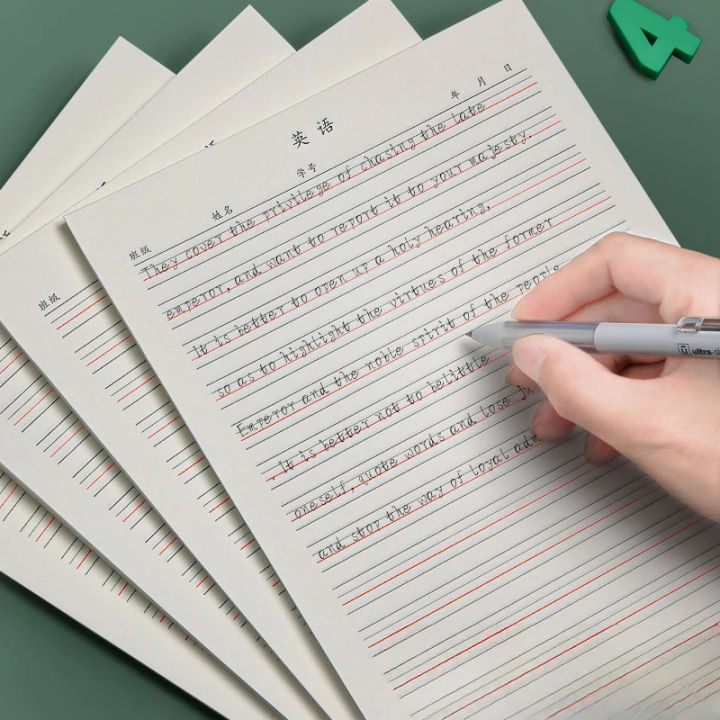 英语
年 月 日
班级 姓名 学号
They cover the privilege of chasing the late
emperor, and want to report it to your majesty.
it is better to open up a holy hearing,
so as to highlight the virtues of the former
Emperor and the noble spirit of the people
. It is better not to belittle
oneself, quote words and lose
and stop the way of loyal adm
班级
ultra
4